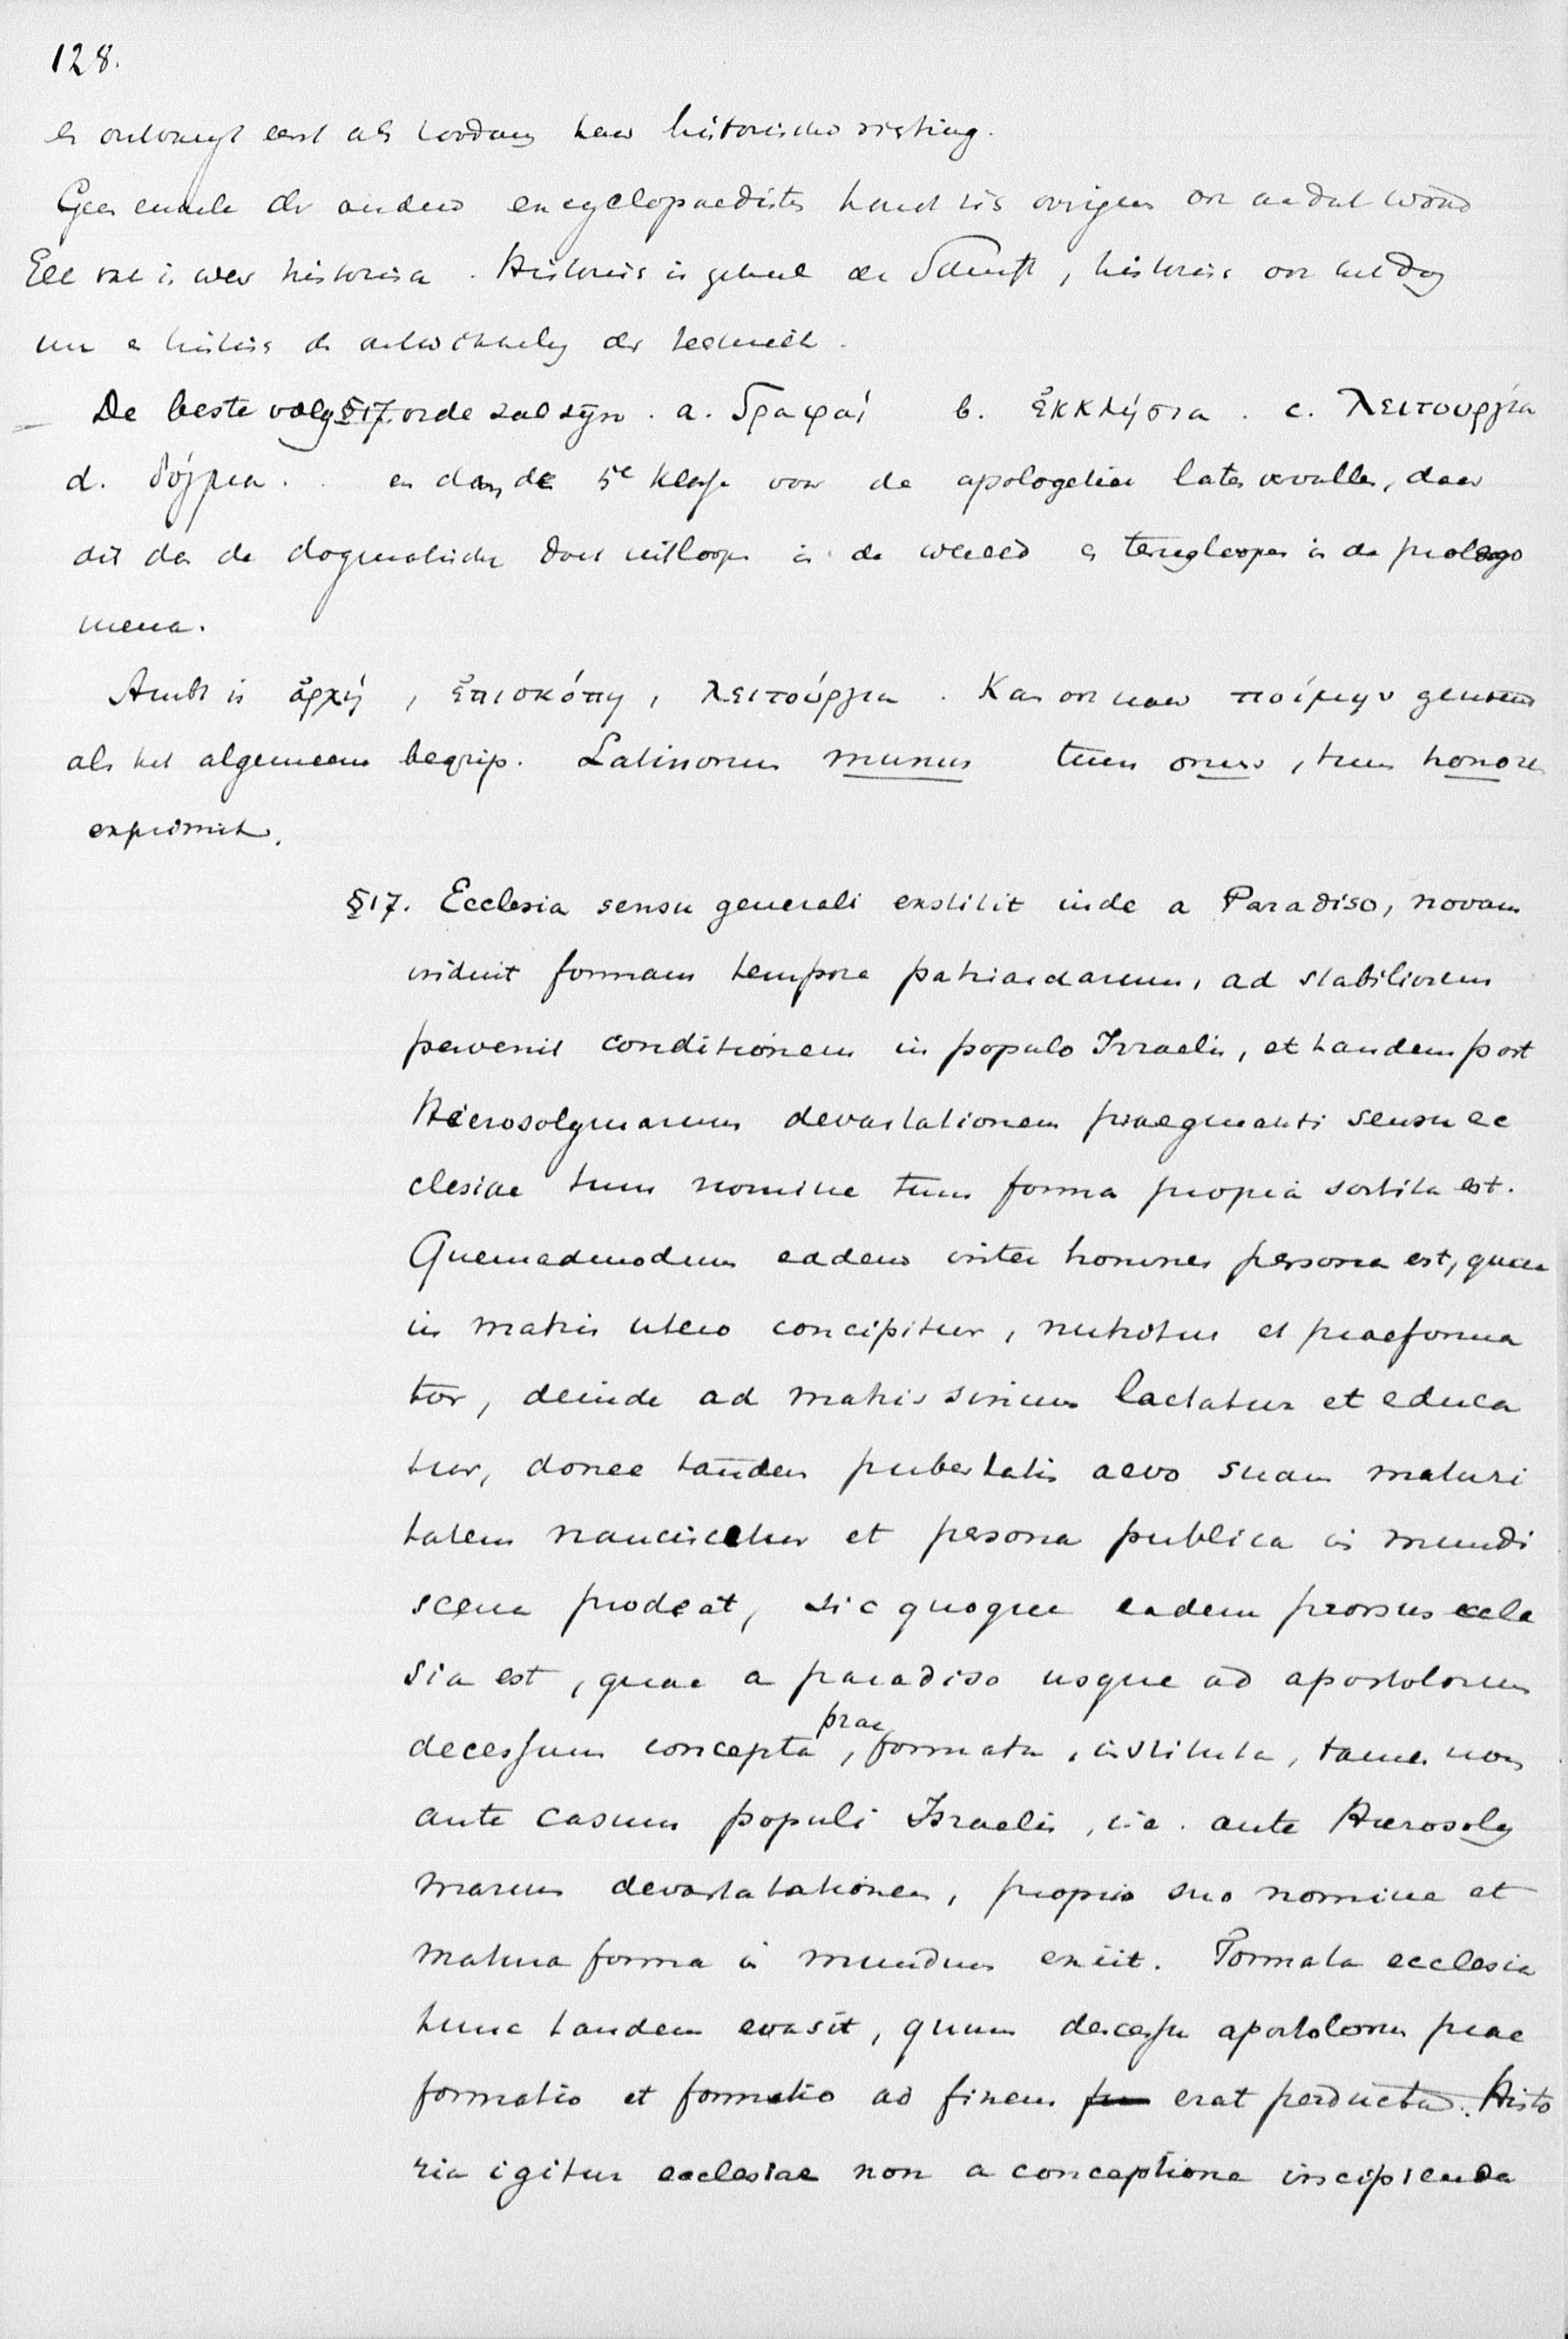 128.
en ontvangt eerst als zoodanig haar historische richting.
Geen enkele der andere encyclopaedisten houdt zich overigens aan dat woord
Elk vak is weer historia. Historie is geheel de Schrift, historie ook het dog
ma en historie de ontwikkeling der techniek.
De beste volg §17. orde zal zijn. a. Γραφαί b. ἐκκλήσια. c. λειτουργία
d. δόγμα. en dan de 5e klasse voor de apologetiek laten vervallen, daar
dit dan de dogmatische doet uitloopen in de wereld en terugloopen in de prolego
mena.
Ambt is ἀρχή, ἐπισκόπη, λειτούργια. Kan ook naar ποίμην genomen
als het algemeene begrip. Latinorum munus tum onus, tum honorem
exprimit.
§17. Ecclesia sensu generali exstitit inde a Paradiso, novam
induit formam tempore patriarcharum, ad stabiliorem
pervenit conditionem in populo Israelis, et tandem post
Hierosolymarum devastationem praegnanti sensu ec
clesiae tum nomine tum forma propria sortita est.
Quemadmodum eadem inter homines persona est, quae
in matris utero concipitur, nutritur et praeforma
tur, deinde ad matris sinum lactatur et educa
tur, donec tandem pubertatis aevo suam maturi
tatem nanciscatur et persona publica in mundi
scena prodeat, sic quoque eadem prorsus eccle
sia est, quae a paradiso usque ad apostolorum
decessum concepta, praeformata, instituta, tamen non
ante casum populi Israelis, i.e. ante Hierosoly
marum devastatationem, proprio suo nomine et
matura forma in mundum exiit. Formata ecclesia
tunc tandem evasit, quum decessu apostolorum prae
formatio et formatio ad finem erat perducta. Histo
ria igitur ecclesiae non a conceptione incipienda